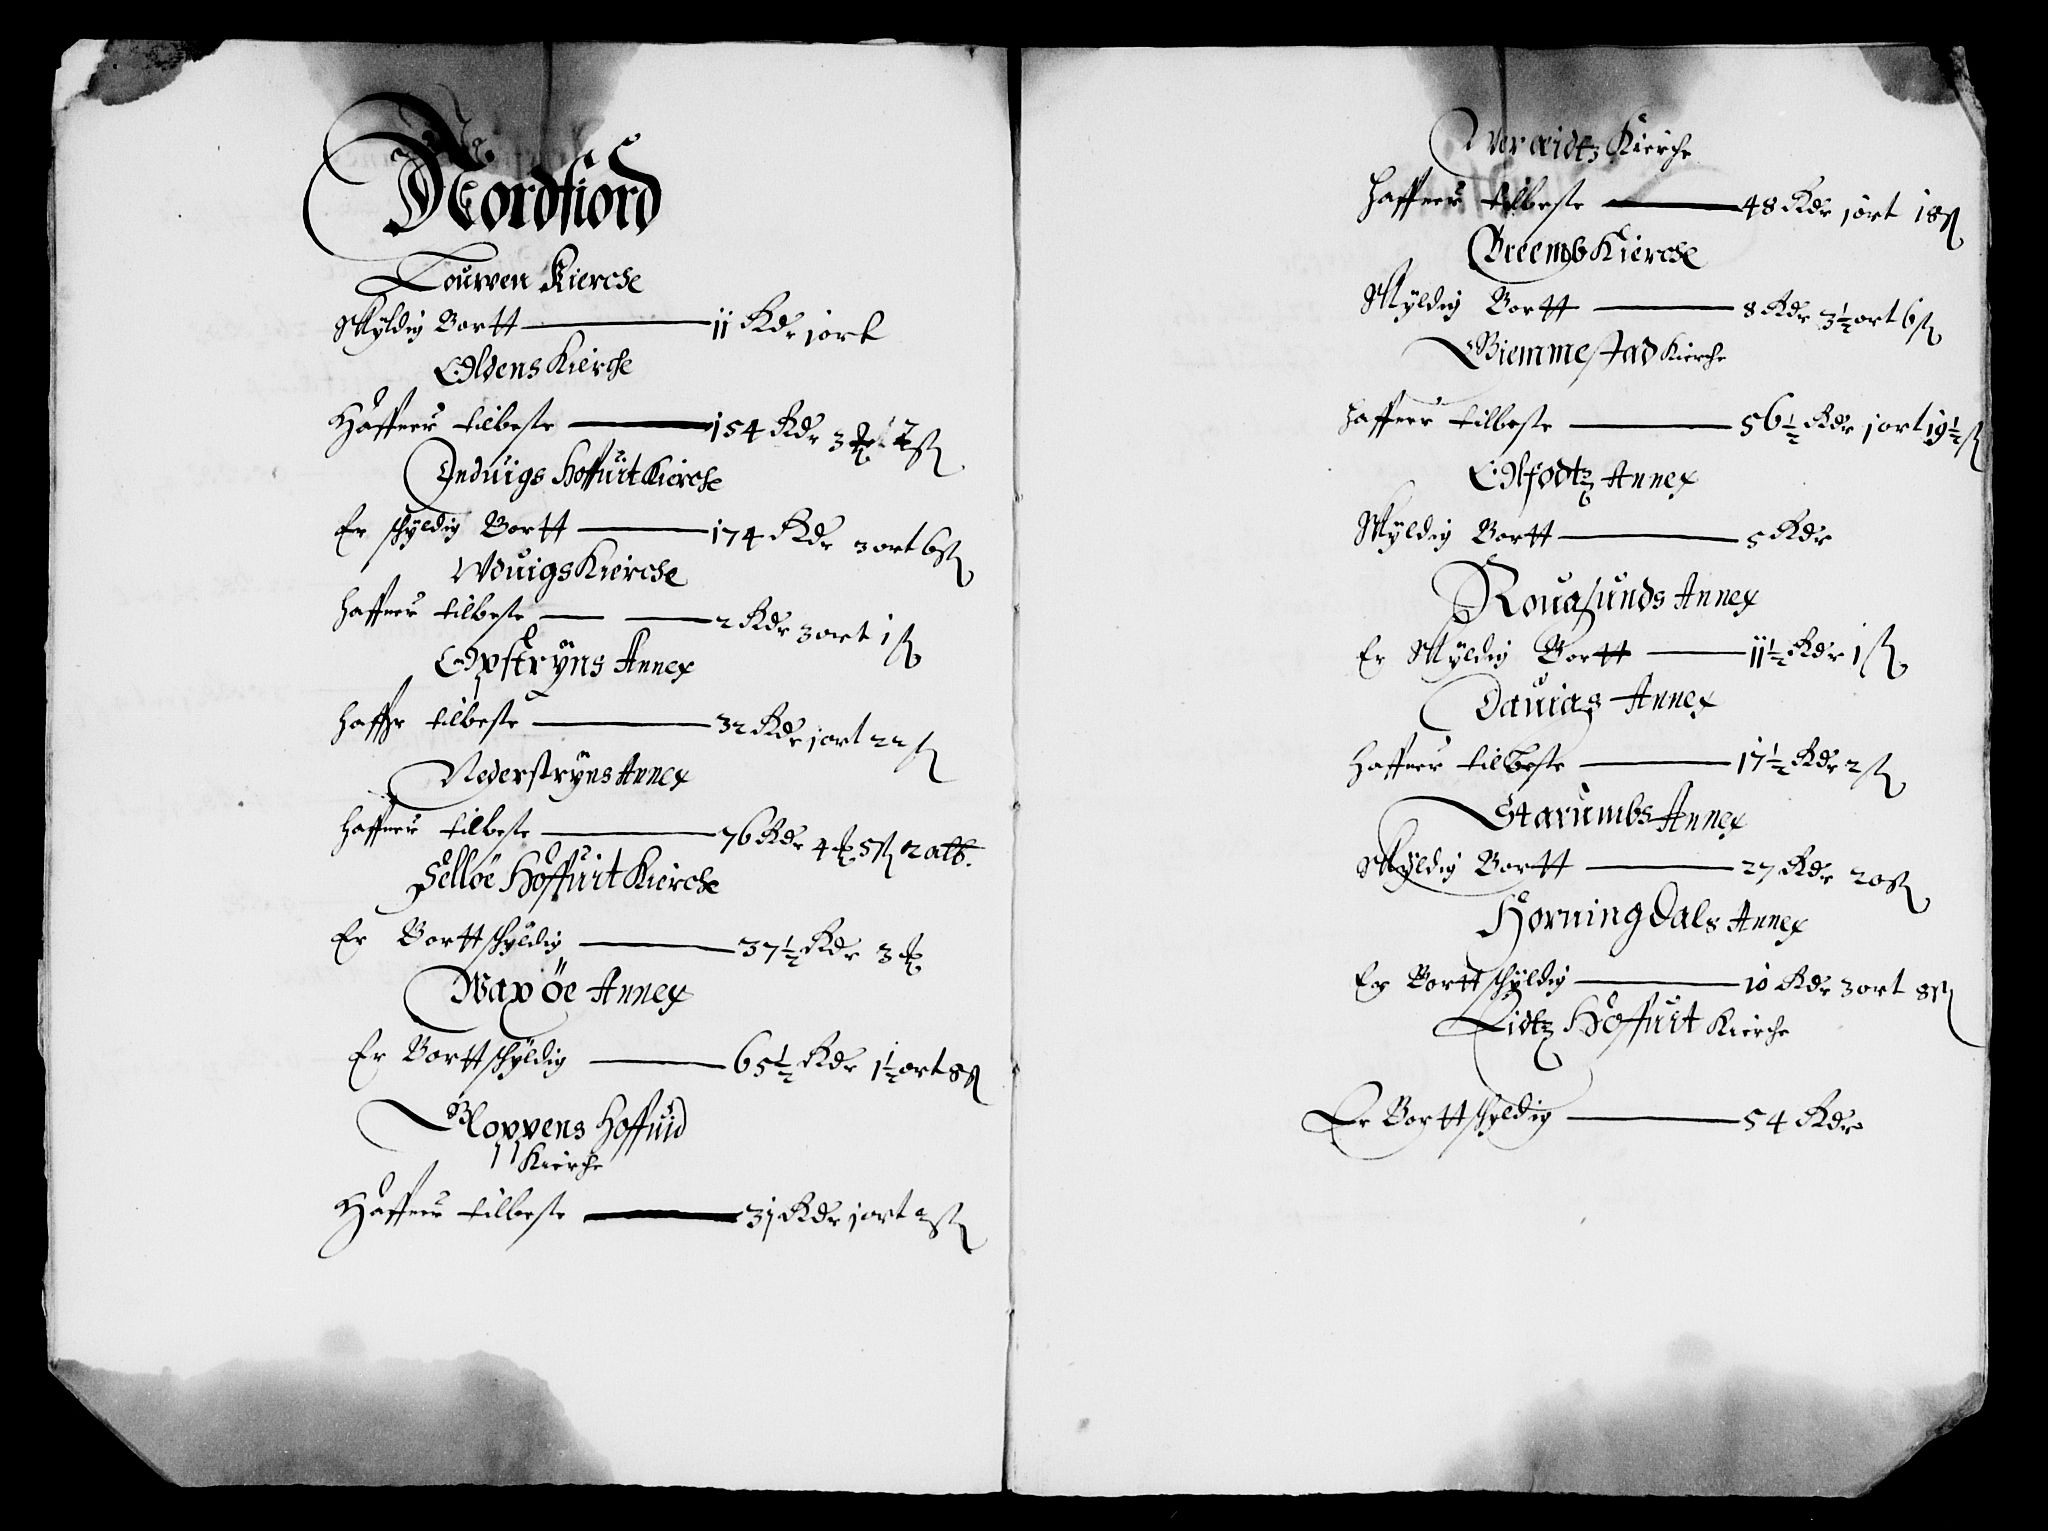 Nordfiord
Louwen Kierche
Skÿldig Bortt — 11 Rdr 1 ort
Oldens Kierche
Haffuer tilbeste — 154 Rdr 3 ₰ 2 ß
Induigs Hoffuit Kierche
Er schÿldig Bortt — 174 Rdr 3 ort 6 ß
Wduigs Kierche
haffuer tilbeste — 2 Rdr 3 ort 1 ß
Opstrÿns Annex
haffr tilbeste — 32 Rdr 1 ort 22 ß
Nederstrÿns Annex
haffuer tilbeste — 76 Rdr 4 ₰ 5 ß 2 alb.
Selløe Hoffuit Kierche
Er Bortt schÿldig — 37½ Rdr 3 ₰
Waxøe Annex
Er Bortt schÿldig — 65½ Rdr 1½ ort 8 ß
Gloppens Hoffuid
Kierche
Haffuer tilbeste — 31 Rdr 1 ort 2 ß
Weraidtz Kierche
Haffuer tilbeste — 48 Rdr 1 ort 18 ß
Breemb Kierche
Skÿldig Bortt — 8 Rdr 3½ ort 6 ß
Giemmestad Kierche
haffuer tilbeste — 56½ Rdr 1 ort 19½ ß
Olfodtz Annex
Skÿldig Bortt — 5 Rdr
Rouasunds Annex
Er Skÿldig Bortt — 11½ Rdr 1 ß
Dauigs Annex
haffuer tilbeste — 17½ Rdr 2 ß
Starumbs Annex
Skÿldig Bortt — 27 Rdr 20 ß
Horningdals Annex
Er Bortt schÿldig — 10 Rdr 3 ort 8 ß
Eidtz Hoffuit Kierche
Er Bortt schÿldig — 54 Rdr